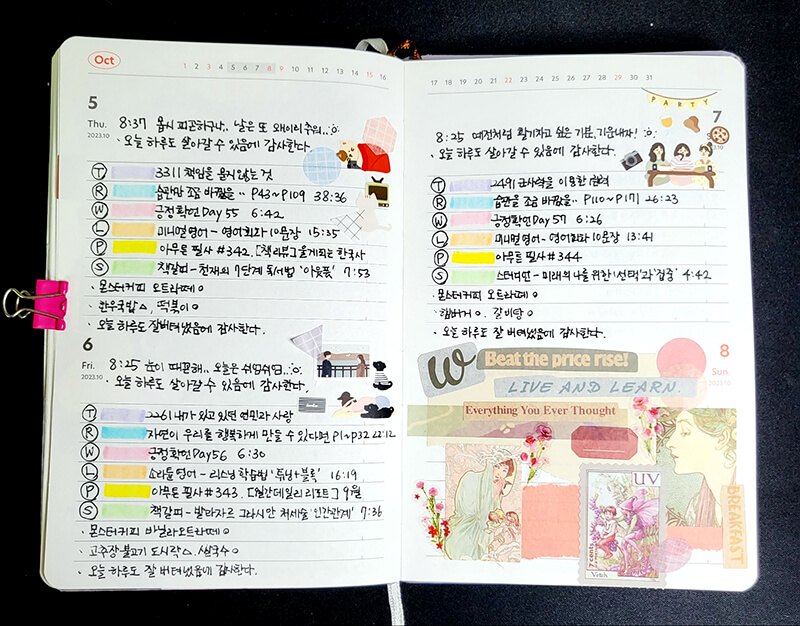 Oct
1 2 3 4 5 6 7 8 9 10 11 12 13 14 15 16
5
Thu.
2023.10
8:37 몹시 피곤하구나.. 날은 또 왜이리 추워..
· 오늘 하루도 살아갈 수 있음에 감사한다.
T 3311 책임을 옮기지 않는 것
R 습관만 조금 바꿨을 .. P43~P109 38:36
W 긍정확언 Day 55 6:42
L 미니멀영어 - 영어회화 10문장 15:35
P 아무튼 필사 #342. [책리뷰] 울게되는 한국사
S 책갈피 - 천재의 7단계 독서법 '아웃풋' 7:53
· 몬스터커피 오트라떼 o
· 한우국밥△, 떡볶이 o
· 오늘 하루도 잘버텨냈음에 감사한다.
6
Fri.
2023.10
8:25 눈이 때꾼해.. 오늘은 쉬엄쉬엄..
· 오늘 하루도 살아갈 수 있음에 감사한다.
T 2261 내가 알고 있던 연민과 사랑
R 자연이 우리를 행복하게 만들 수 있다면 P1~P32 22:12
W 긍정확언 Day 56 6:30
L 소리튠영어 - 리스닝 학습법 '튜닝+블록' 16:19
P 아무튼 필사 #343. [월간데일리리포트] 9월
S 책갈피 - 발타자르 그라시안 처세술 '인간관계' 7:36
· 몬스터커피 바닐라오트라떼 o
· 고추장불고기 도시락△, 쌀국수 o
· 오늘 하루도 잘 버텨냈음에 감사한다.
17 18 19 20 21 22 23 24 25 26 27 28 29 30 31
PARTY
7
2023.10
8:25 예전처럼 활기차고 싶은 기분, 기운내자!
· 오늘 하루도 살아갈 수 있음에 감사한다.
T 2491 군사력을 이용한 권력
R 습관을 조금 바꿨을.. P110~P171 26:23
W 긍정확언 Day 57 6:26
L 미니멀영어 - 영어회화 10문장 13:41
P 아무튼 필사 #344
S 스터디언 - 미래의 나를 위한 '선택'과 '집중' 4:42
· 몬스터커피 오트라떼 o
· 햄버거 o, 갈비탕 o
· 오늘 하루도 잘 버텨냈음에 감사한다.
8
Sun.
2023.10
W
Beat the price rise!
LIVE AND LEARN.
Everything You Ever Thought
UV
7 cents
Vetch
BREAKFAST